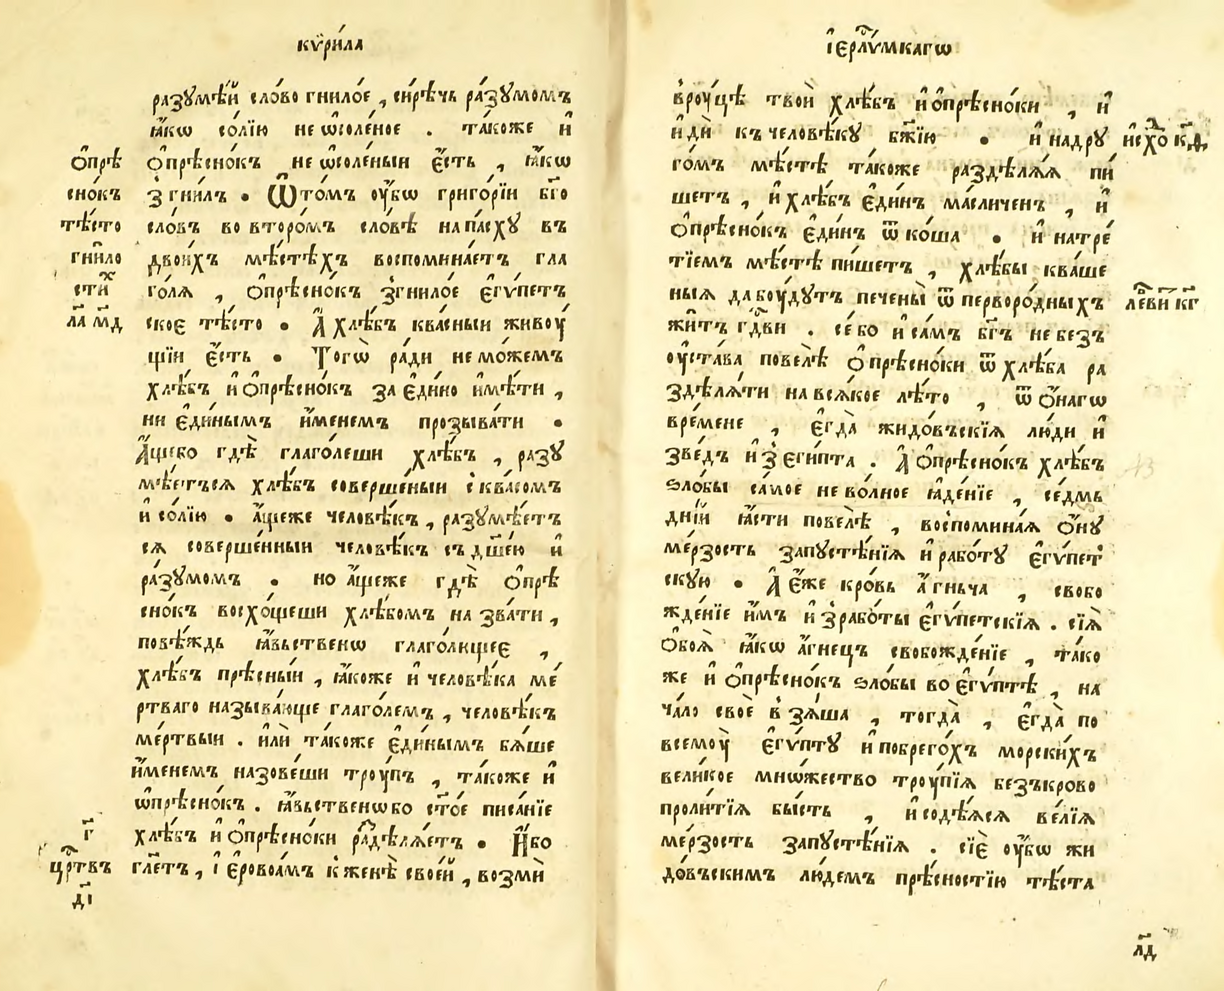 кѷри́ла
разꙋмѣ́й сло́во гнило́е , си́рѣчь ра́зꙋмомъ
ꙗ҆́кѡ со́лїю не ѡ҆соле́ное . та́коже и҆
о҆прѣсно́къ не ѡ҆соле́ныи є҆́сть , ꙗ҆́кѡ
з̾гни́лъ . Ѿто́мъ оу҆́бѡ григо́рїи бг҃о
сло́въ во второ́мъ сло́вѣ на па́схꙋ въ
двои́хъ мѣ́стѣхъ воспомина́етъ гла
го́лѧ , о҆прѣсно́къ з̾гнило́е є҆гѵ́петъ
ское тѣ́сто . А҆ хлѣ́бъ ква́сныи живоу́
щїи є҆́сть . Тогѡ̀ ра́ди не мо́жемъ
хлѣ́бъ и҆ о҆прѣсно́къ за є҆ди́но и҆мѣ́ти ,
ни є҆ди́нымъ и҆́менемъ прозыва́ти .
А҆́щебо гдѣ̀ глаго́леши хлѣ́бъ , разꙋ
мѣ́етъсѧ хлѣ́бъ соверше́ныи с̾ква́сомъ
и҆ со́лїю . а҆́щеже человѣ́къ , разꙋмѣ́етъ
сѧ соверше́нныи человѣ́къ съ дш҃е́ю и҆
ра́зꙋмомъ . но а҆́щеже гдѣ̀ о҆прѣ
сно́къ восхо́щеши хлѣ́бомъ на зва́ти ,
повѣ́ждь ꙗ҆́вьственѡ глаго́лющее ,
хлѣ́бъ прѣ́сныи , ꙗ҆́коже и҆ человѣ́ка ме́
ртваго называ́юще глаго́лемъ , человѣ́къ
ме́ртвыи . и҆лѝ та́коже є҆ди́нымъ бѧ́ше
и҆́менемъ назове́ши троу́пъ , та́коже и҆
ѡ҆прѣсно́къ . ꙗ҆́вьственѡбо ст҃о́е писа́нїе
хлѣ́бъ и҆ о҆прѣсно́ки раⷥдѣлѧ́етъ . И҆́бо
гл҃етъ , і҆ є҆ровоа́мъ к̾ женѣ̀ свое́й , возмѝ
о҆прѣ
сно́къ
тѣ́сто
гни́ло
г҃
црⷭ҇твъ
д҃і
і҆ерⷭ҇лѵ́мкагѡ
в̾роу́цѣ твоѝ хлѣ́бъ и҆ о҆прѣсно́ки , и҆
и҆дѝ къ человѣ́кꙋ бж҃їю . и҆ на дрꙋ
го́мъ мѣ́стѣ та́коже раздѣлѧ́ѧ пи́
шетъ , и҆ хлѣ́бъ є҆ди́нъ ма́сличенъ , и҆
о҆прѣсно́къ є҆ди́нъ ѿ ко́ша . и҆ на тре́
тїемъ мѣ́стѣ пи́шетъ , хлѣ́бы ква́ше
ныѧ да боу́дꙋтъ пече́ны ѿ перворо́дныхъ
жи́тъ гдⷭ҇ви . се́ бо и҆ са́мъ бг҃ъ не безъ
оу҆ста́ва повелѣ̀ о҆прѣсно́ки ѿ хлѣ́ба ра
здѣлѧ́ти на всѧ́кое лѣ́то , ѿ о҆́нагѡ
вре́мене , є҆гда̀ жидо́въскїѧ лю́ди и҆
зве́дъ и҆з̾ є҆ги́пта . А҆ о҆прѣсно́къ хлѣ́бъ
ѕло́бы са́мое не во́лное ꙗ҆де́нїе , се́дмь
дні́й ꙗ҆́сти повелѣ̀ , воспомина́ѧ о҆́нꙋ
ме́рзость запꙋстѣ́нїѧ и҆ рабо́тꙋ є҆гѵ́пет
скꙋю . А҆ є҆́же кро́вь а҆́гньча , свобо
жде́нїе и҆̀мъ и҆з̾ рабо́ты є҆гѵ́петскїѧ . сїѧ̀
о҆боѧ̀ ꙗ҆́кѡ а҆́гнецъ свобожде́нїе , та́ко
же и҆ о҆прѣсно́къ ѕло́бы во є҆гѵ́птѣ , на
ча́ло своѐ в̾зѧ́ша , тогда̀ , є҆гда̀ по
всемоу̀ є҆гѵ́птꙋ и҆ по брего́хъ морски́хъ
вели́кое мно́жество троу́пїѧ безъ крово
проли́тїѧ бы́сть , и҆ содѣ́ѧсѧ ве́лїѧ
ме́рзость запꙋстѣ́нїѧ . сїѐ оу҆́бѡ жи
до́въскимъ лю́демъ прѣ́сностїю тѣ́ста
и҆схоⷣ к҃д
леѵⷵи́ к҃г
л҃д